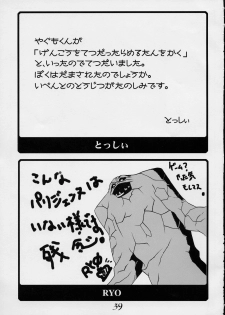 やぐもくんが
「げんこうをてつだったらめるたんをかく」
と、いったのでてつだいました。
ぼくはだまされたのでしょうか。
いべんとのとうじつがたのしみです。
とっしい
とっしい
こんな
パリジェンヌは
いない様です
残念!
ゲーム?
やった気
もしてスス
RYO
39